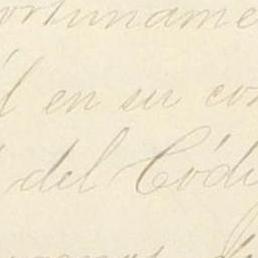 ortuname
él en su con
del Códi